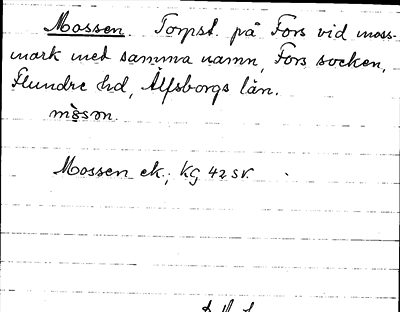 Mossen. Torpst. på Fors vid moss-
mark med samma namn, Fors socken,
Flundre hd, Älfsborgs län.
mòsən.
Mossen ek.; KG 42 SV.